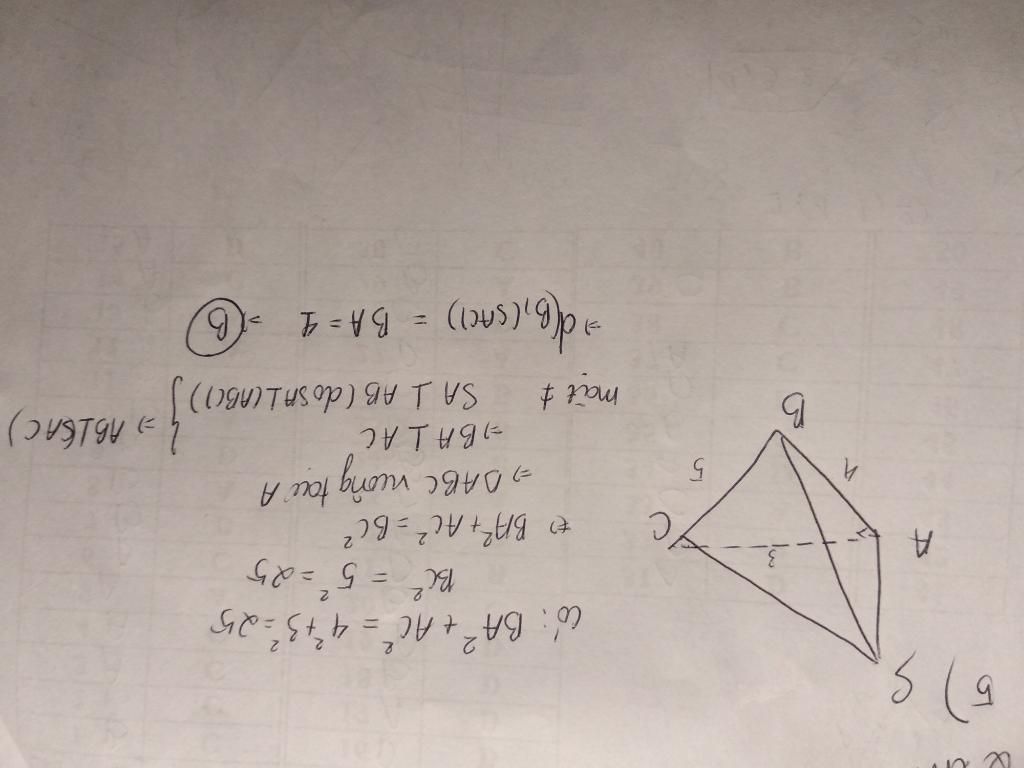 5)
S
A
B
C
4
3
5
Có: BA² + AC² = 4² + 3² = 25
BC² = 5² = 25
⇔ BA² + AC² = BC²
⇒ ΔABC vuông tại A
⇒ BA ⊥ AC
mặt ≠ SA ⊥ AB (do SA ⊥ (ABC)) } ⇒ AB ⊥ (SAC)
⇒ d(B,(SAC)) = BA = 4 ⇒ B